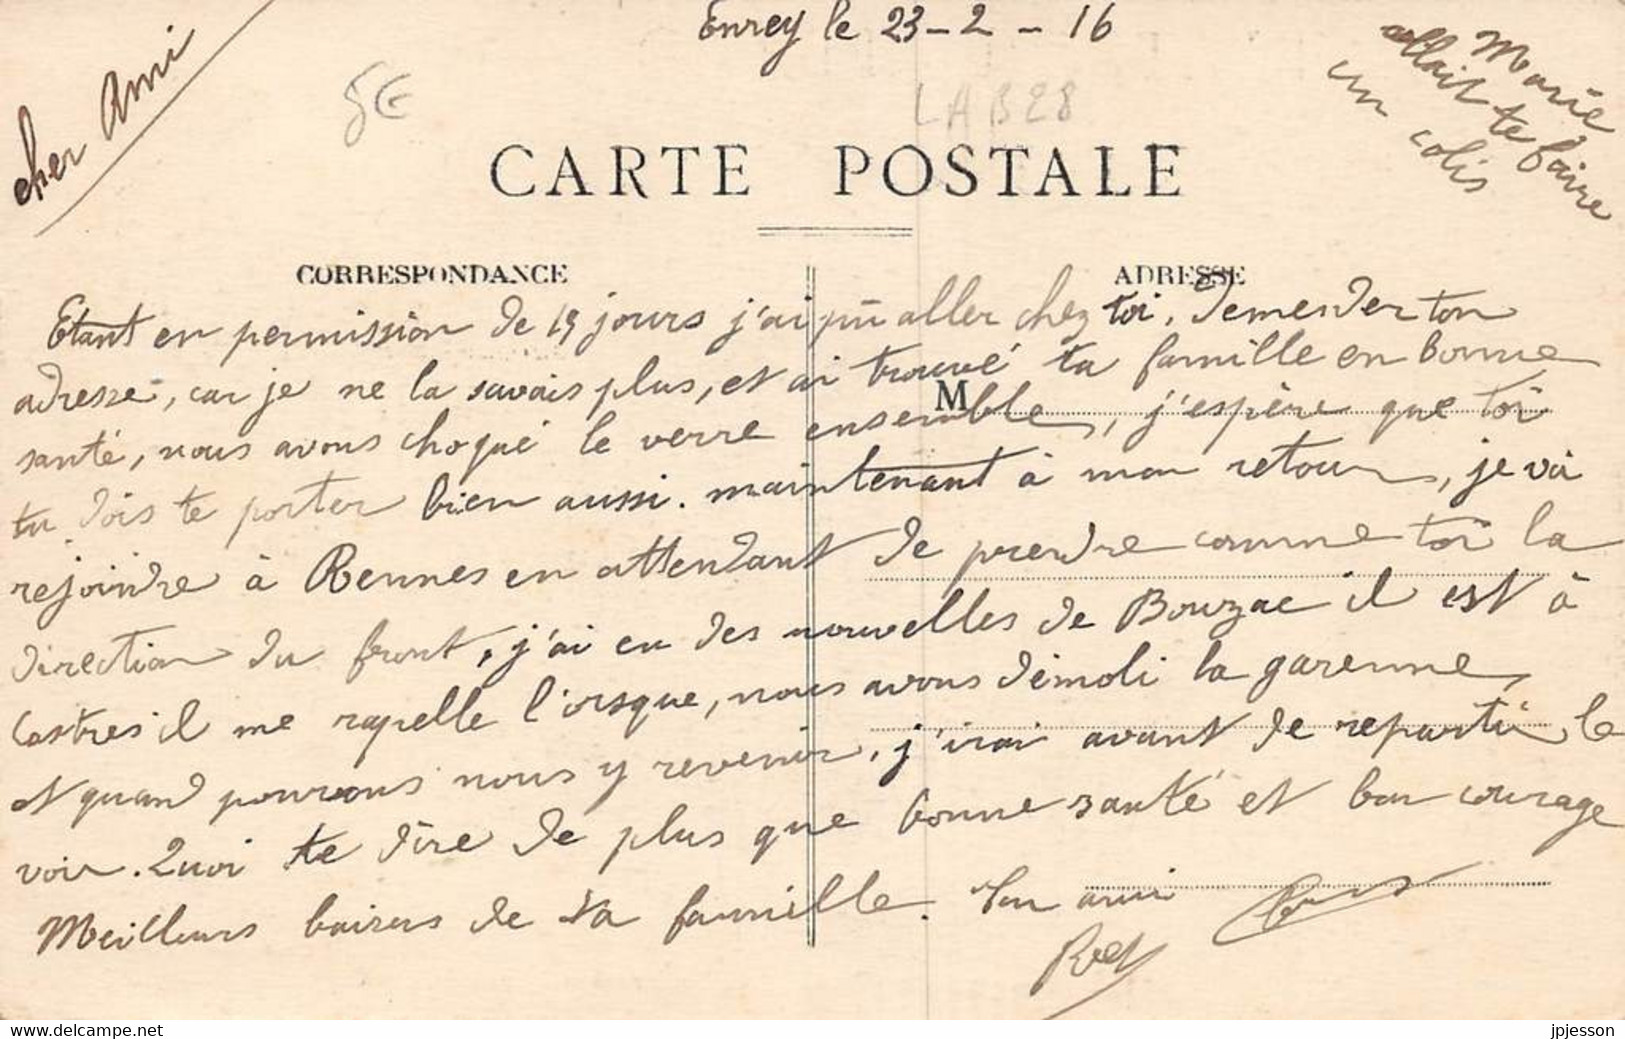 Enrey le 23-2-16
cher Ami
5€
LAB28
Marie
allait te faire
un colis
CARTE POSTALE
CORRESPONDANCE
ADRESSE
M
Etant en permission de 15 jours j'ai pu aller chez toi, demender ton
adresse, car je ne la savais plus, et ai trouvé ta famille en bonne
santé, nous avons choqué le verre ensemble, j'espère que toi
tu dois te porter bien aussi. maintenant à mon retour, je vai
rejoindre à Rennes en attendant de prendre comme toi la
direction du front, j'ai eu des nouvelles de Bouzac il est à
Castres il me rapelle l'orsque, nous avons démoli la garenne,
et quand pourrons nous y revenir, j'irai avant de repartir le
voir. Quoi te dire de plus que bonne santé et bon courage
Meilleurs baisers de ta famille. Ton ami
jpjesson
© delcampe.net